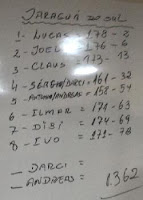 JARAGUÁ DO SUL
1 - LUCAS - 178 - 2
2 - JOEL - 176 - 6
3 - CLAUS - 173 - 13
4 - SÉRGIO/DARCI - 161 - 32
5 - ANTONIO/ANDREAS - 158 - 54
6 - ILMAR - 171 - 63
7 - DIDI - 174 - 69
8 - IVO - 171 - 78
- DARCI =
- ANDREAS
1.362